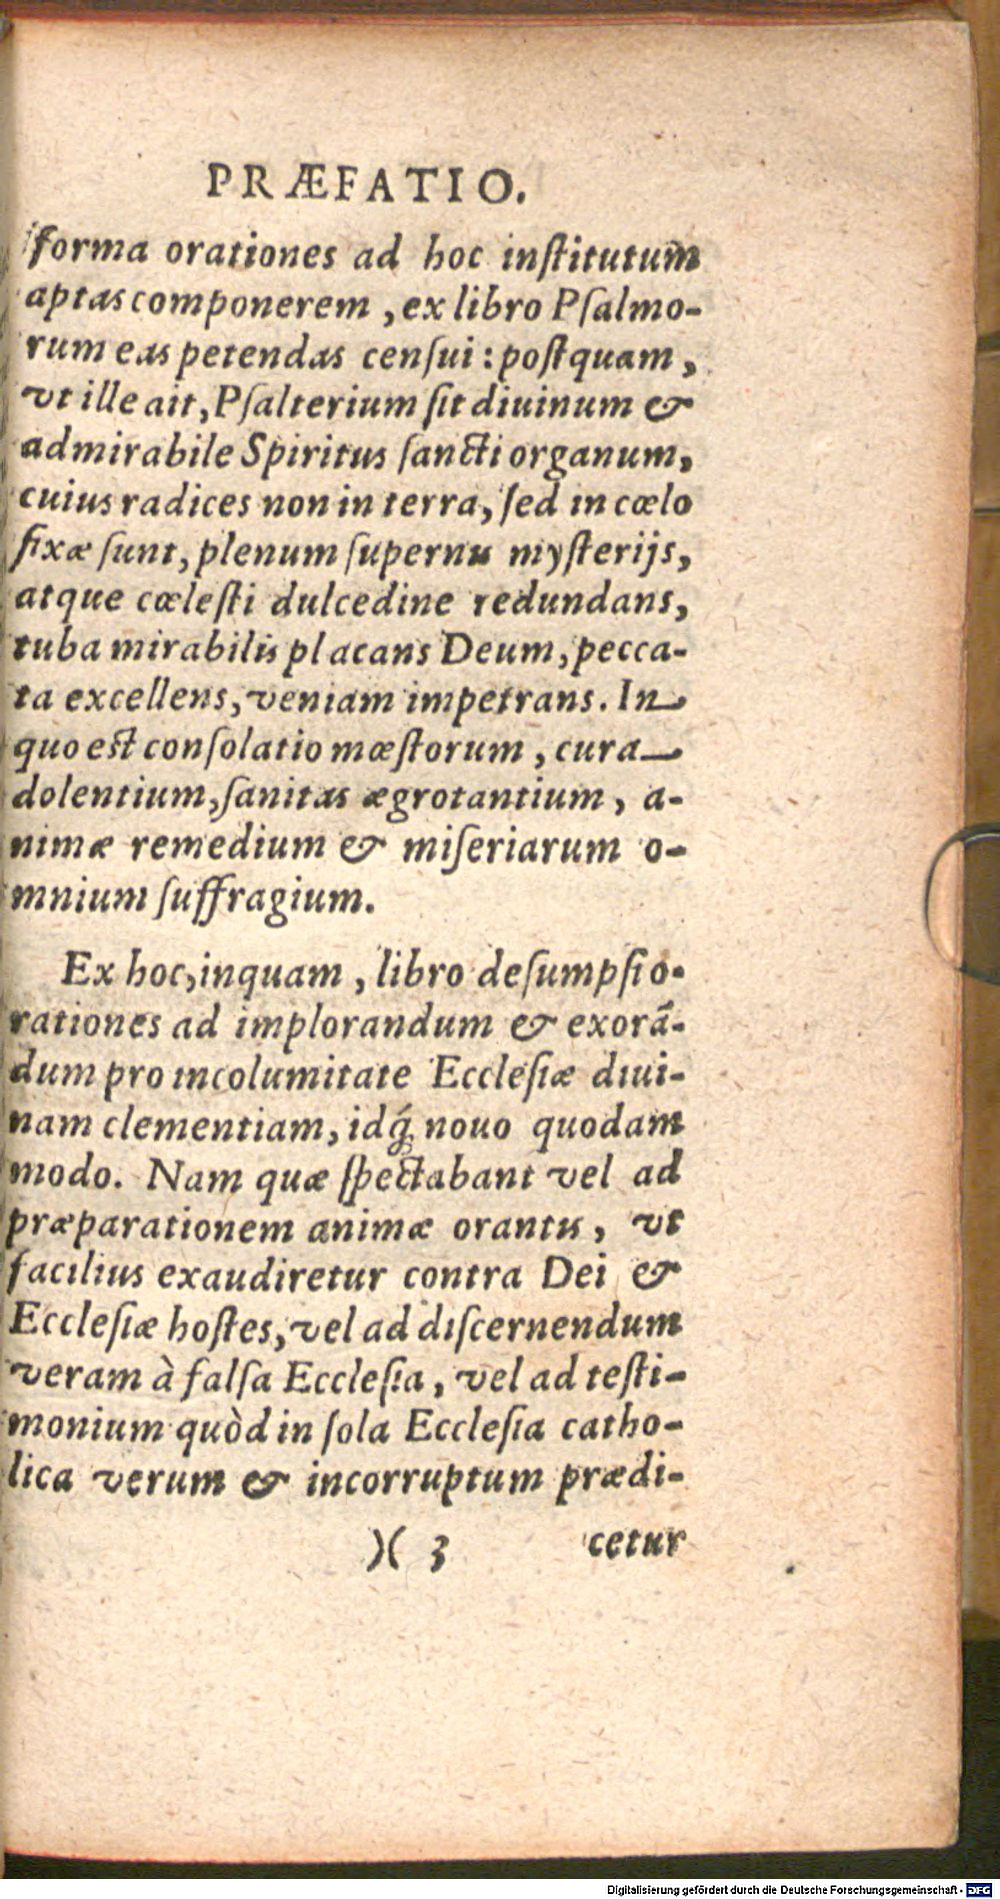 PRÆFATIO.
forma orationes ad hoc inſtitutum
aptas componerem, ex libro Pſalmo-
rum eas petendas cenſui: poſtquam,
vt ille ait, Pſalterium ſit diuinum &
admirabile Spiritus ſancti organum,
cuius radices non in terra, ſed in cœlo
fixæ ſunt, plenum ſupernis myſterijs,
atque cœleſti dulcedine redundans,
tuba mirabilis placans Deum, pecca-
ta excellens, veniam impetrans. In
quo est conſolatio mœſtorum, cura
dolentium, ſanitas ægrotantium, a-
nimæ remedium & miſeriarum o-
mnium ſuffragium.
Ex hoc, inquam, libro deſumpſi o-
rationes ad implorandum & exorā-
dum pro incolumitate Eccleſiæ diui-
nam clementiam, idq́; nouo quodam
modo. Nam quæ ſpectabant vel ad
præparationem animæ orantis, vt
facilius exaudiretur contra Dei &
Eccleſiæ hoſtes, vel ad diſcernendum
veram à falſa Eccleſia, vel ad teſti-
monium quòd in ſola Eccleſia catho-
lica verum & incorruptum prædi-
)( 3 cetur
Digitalisierung gefördert durch die Deutsche Forschungsgemeinschaft - DFG